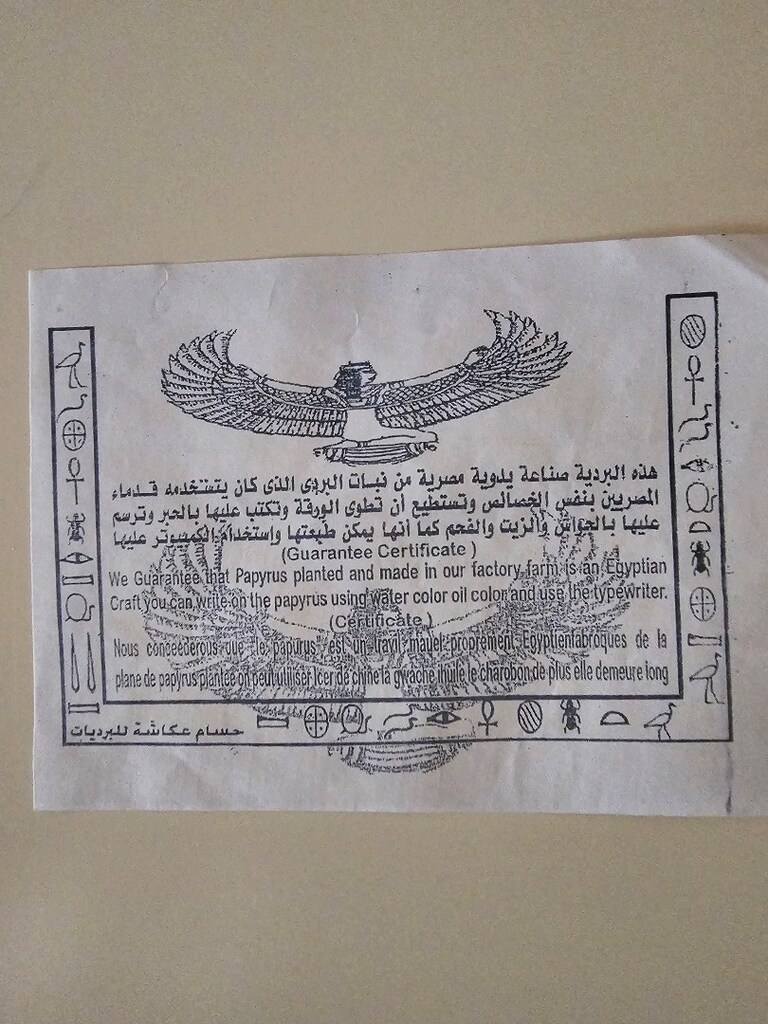 هذه البردية صناعة يدوية مصرية من نبات البردى الذى كان يتستخدمه قدماء
المصريين بنفس الخصائص وتستطيع أن تطوى الورقة وتكتب عليها بالحبر وترسم
عليها بالجواش والزيت والفحم كما أنها يمكن طبعتها وإستخدام الكمبيوتر عليها
(Guarantee Certificate )
We Guarantee that Papyrus planted and made in our factory farm is an Egyptian
Craft you can write on the papyrus using water color oil color and use the typewriter.
(Certificate )
Nous conceederous que le papurus est un travil mauel proprement Egyptienfabroques de la
plane de papyrus plantee on peut uliliser lcer de chine la gwache ihuile le charobon de plus elle demeure long
حسام عكاشة للبرديات